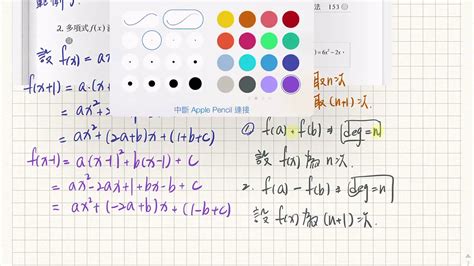 法 153
2. 多項式 f(x)
設 f(x) = ax²
f(x+1) = a·(x+1
= ax²+
= ax²+(2a+b)x+(1+b+c)
f(x-1) = a(x-1)²+b(x-1)+c
= ax²-2ax+1+bx-b+c
= ax²+(-2a+b)x+(1-b+c)
中斷 Apple Pencil 連接
)=6x²-2x-
取 n 次
取 (n+1) 次
① f(a)+f(b) ⇒ deg=n
設 f(x) 為 n 次.
2. f(a)-f(b) ⇒ deg=n
設 f(x) 為 (n+1) 次.